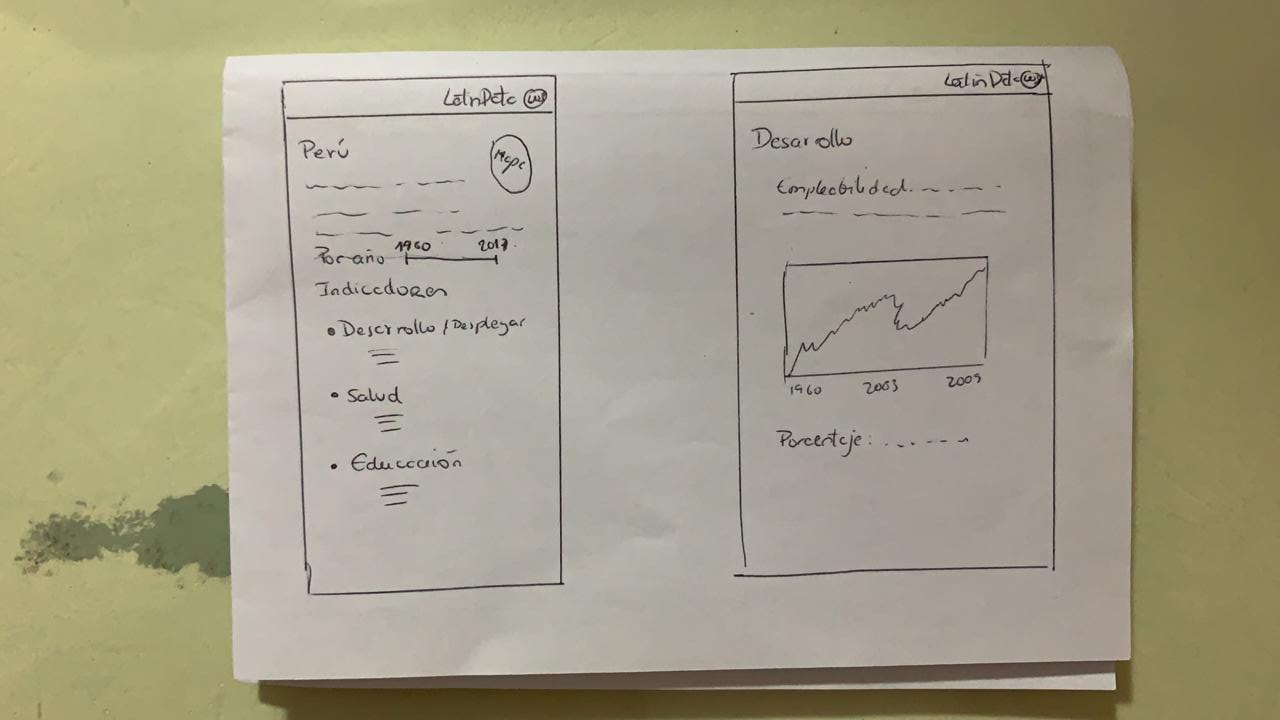 LatinData
Perú
Mapa
1960 2017
Por año
Indicadores
• Desarrollo / Desplegar
• Salud
• Educación
LatinData
Desarrollo
Empleabilidad
1960 2003 2009
Porcentaje: